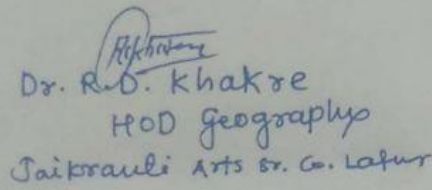 Dr. R.D. Khakre
HOD Geography
Jaikranti Arts Sr. Co. Latur